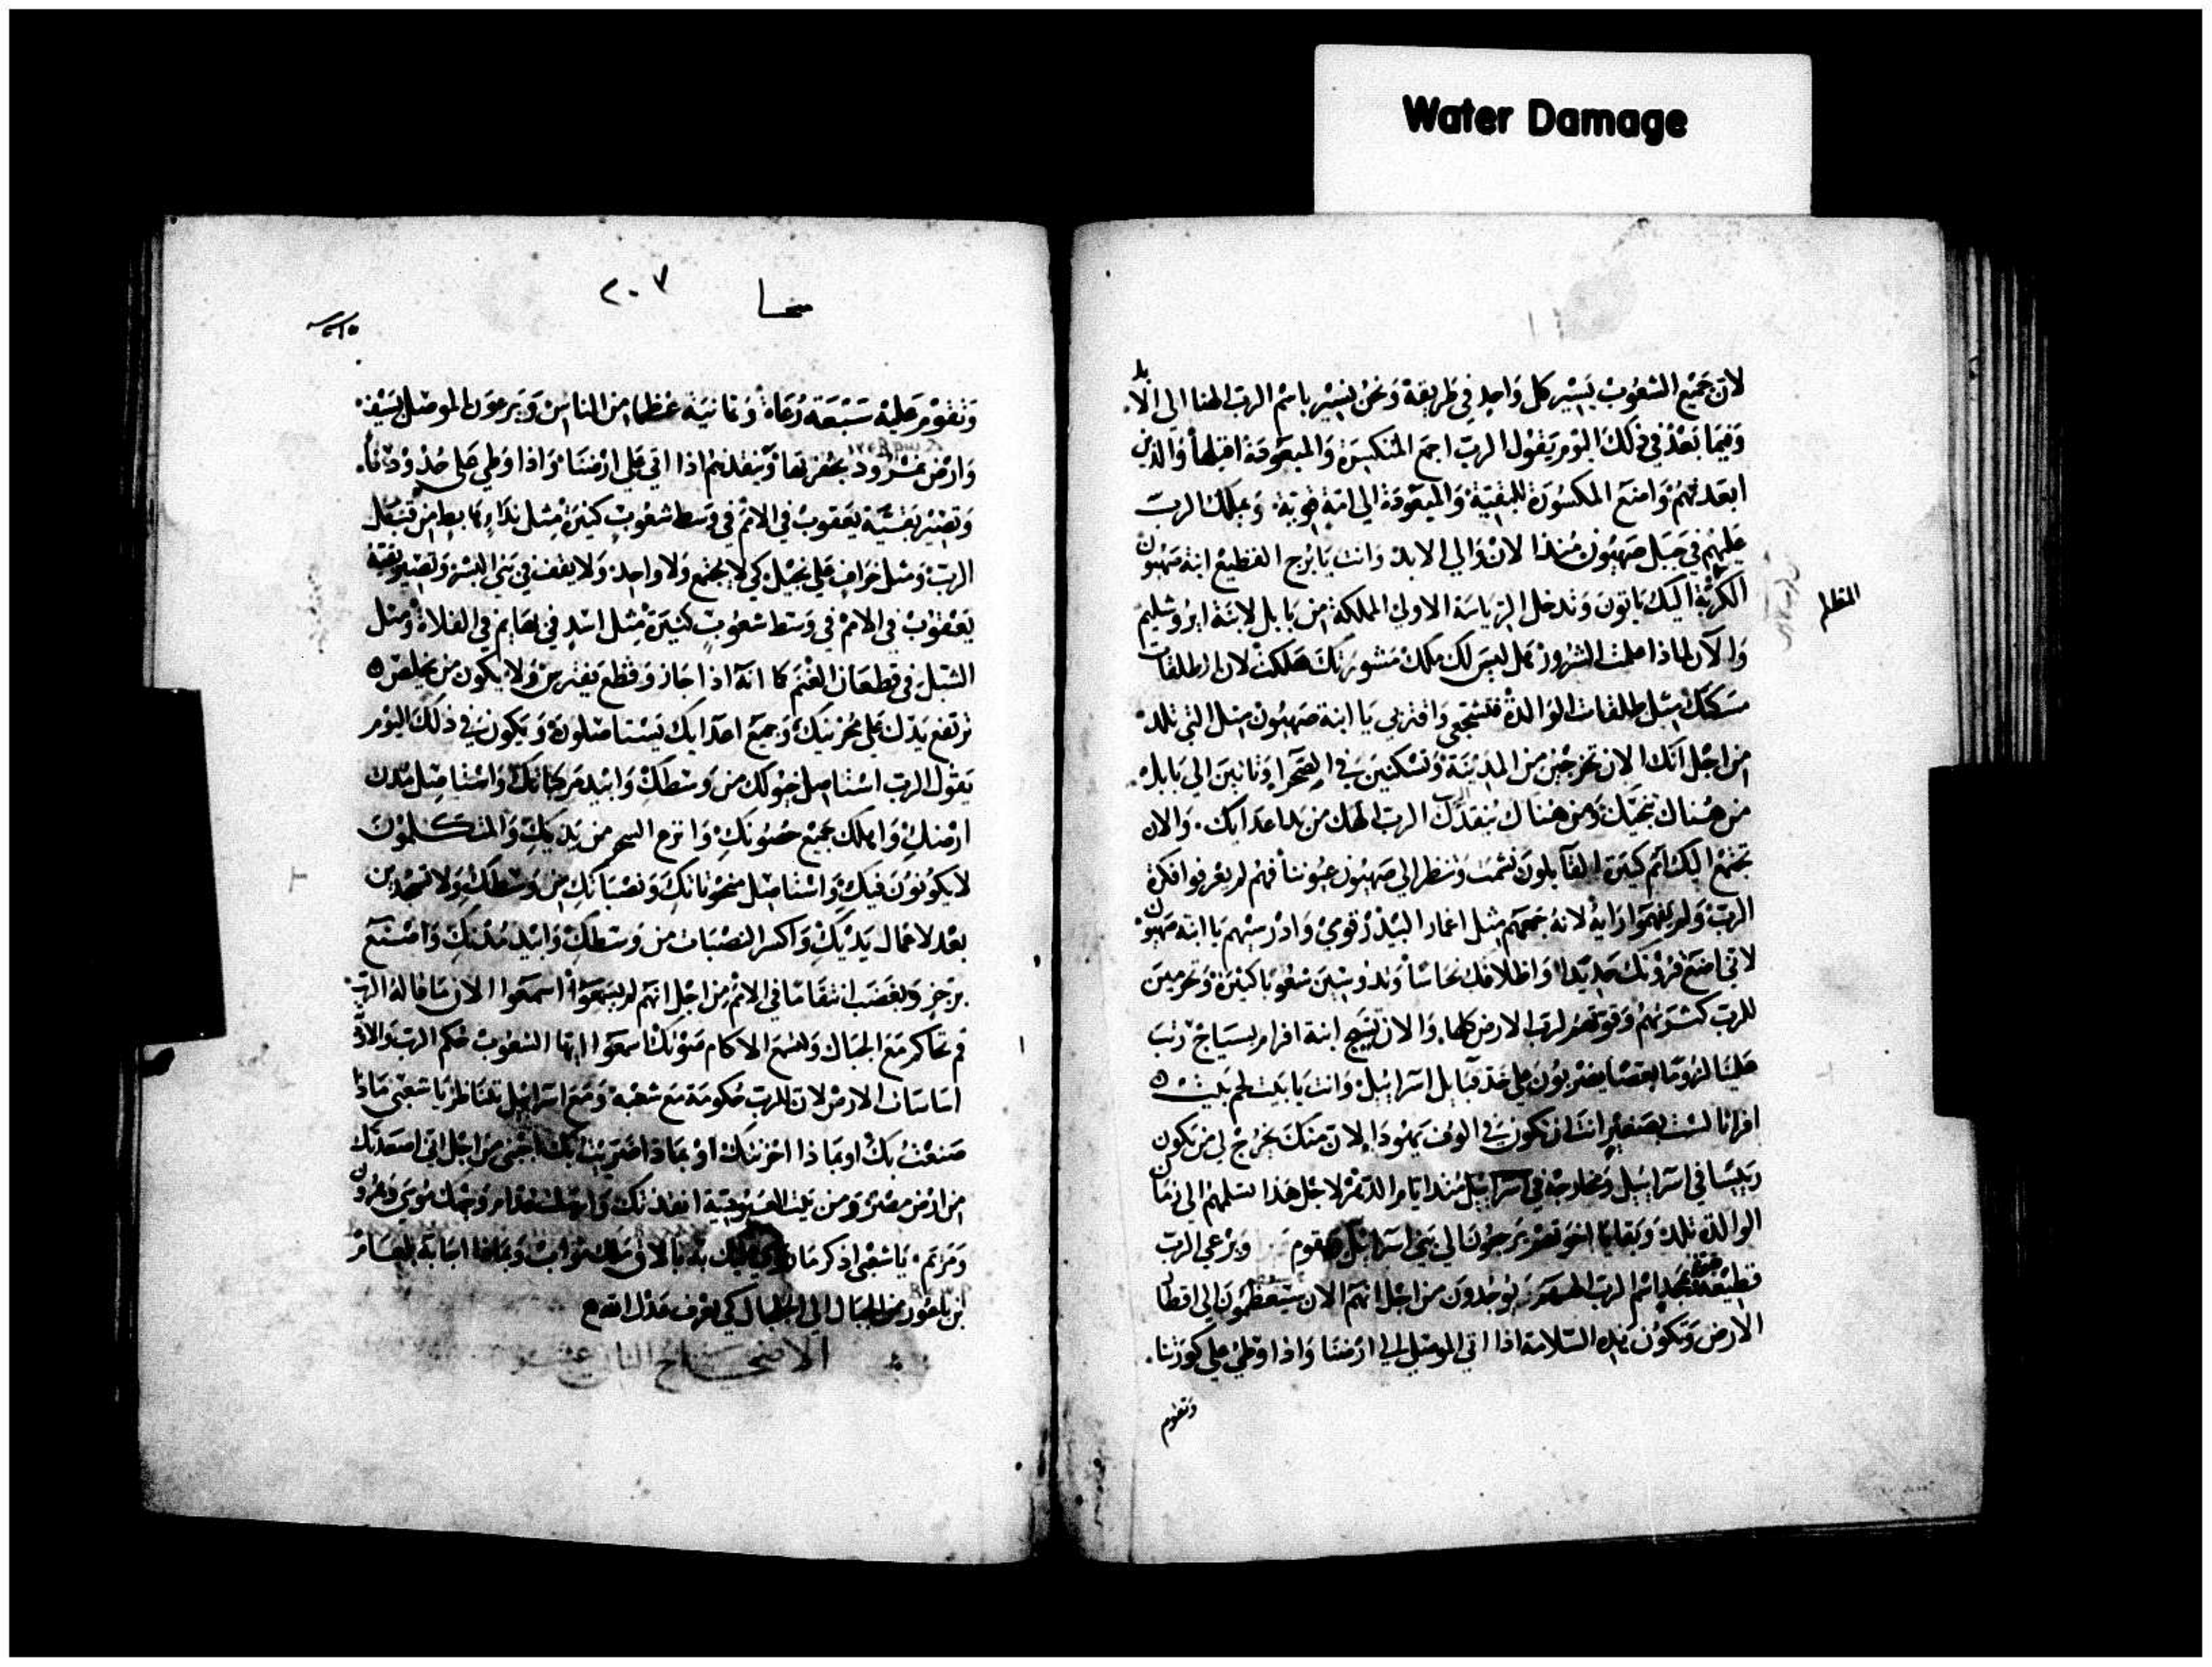 Water Damage
لان جميع الشعوب يسير كل واحد في طريقة ونحن نسير باسم الرب الهنا الى الابد
وفيما بعد في ذلك اليوم يقول الرب اجمع المنكسرة والمبعودة اقبلها والذين
ابعدتهم وامنع المكسورة للبقية والمبعودة الى امة قوية ويملك الرب
عليهم في جبل صهيون منذ الان والى الابد وانت يا برج القطيع ابنة صهيون
المظلم
الكربة اليك ياتون وتدخل الرياسة الاولى المملكة من بابل لابنة ايروشليم
والآن لماذا علمت الشرور هل ليس لك ملك مشورتك هلكت لان الطلقات
مسكتك مثل طلقات الوالدة فتشجعي واقتربي يا ابنة صهيون مثل التي تلد
من اجل انك الان تخرجين من المدينة وتسكنين في الصحرا وتاتين الى بابل
من هناك ينجيك ومن هناك ينقذك الرب الهك من يد اعدايك والان
تجتمع اليك امم كثيرة القايلون نشمت وتنظر الى صهيون عيوننا فهم لم يعرفوا فكرة
الرب ولم يفهموا رايه لانه جمعهم مثل اغمار البيدر قومي وادرسيهم يا ابنة صهيون
لاني اصنع قرونك حديدا واظلافك نحاسا وتدوسين شعوبا كثيرة وتحرمين
للرب كثرتهم وقوتهم لرب الارض كلها والان تسيج ابنة افرام بسياج رتب
علينا لزوما بعصا يضربون على خد قبايل اسراييل وانت يا بيت لحم بيت
افراثا لست بصغير انت ان تكون في الوف يهودا لان منك يخرج لي من يكون
رييسا في اسراييل ومخارجه في اسراييل منذ ايام الدهر لاجل هذا تسلمهم الى زمان
الوالدة تلد وبقايا اخوتهم يرجعون الى بني اسراييل فيقوم ويرعى الرب
قطيعه بمجد اسم الرب الههم يوجدون من اجل انهم الان سيعظمون الى اقطار
الارض وتكون هذه السلامة اذا اتى الموصلي الى ارضنا واذا وطي على كورتنا
وتقوم
سحا
٢٠٧
٢١٥
وتقوم عليه سبعة رعاة وثمانية عظما من الناس ويرعون الموصل بسيف
وارض نمرود بحفرتها وينقذهم اذا اتى على ارضنا واذا وطي على حدودنا
وتصير بقية يعقوب في الامم في وسط شعوب كثيرة مثل نداء هابط من قبل
الرب ومثل خراف على نجيل كي لا يجتمع ولا واحد ولا يقف في بني البشر وتصير بقية
يعقوب في الامم في وسط شعوب كثيرة مثل اسد في بهايم في الفلاة ومثل
الشبل في قطعان الغنم كما انه اذا جاز وقطع يفترس ولا يكون من يخلص
ترتفع يدك على محزنيك وجميع اعدايك يستاصلون ويكون في ذلك اليوم
يقول الرب استاصل خيولك من وسطك وابيد مركباتك واستاصل مدن
ارضك واهلك جميع حصونك وانزع السحر من يديك والمتكلمون
لا يكونون فيك واستاصل منحوتاتك ونصباتك من وسطك ولا تسجدين
بعد لاعمال يديك واكسر النصبات من وسطك وابيد مدنك واصنع
برجز وبغضب انتقاما في الامم من اجل انهم لم يسمعوا اسمعوا الان ما قاله الرب
قم تحاكم مع الجبال ولتسمع الاكام صوتك اسمعوا ايها الشعوب حكم الرب والاودية
اساسات الارض لان للرب حكومة مع شعبه ومع اسراييل يتناظر يا شعبي ماذا
صنعت بك او بماذا احزنتك او بماذا اضريت بك اجبني من اجل اني اصعدتك
من ارض مصر ومن بيت العبودية انقذتك وارسلت قدام وجهك موسى وهرون
ومريم يا شعبي اذكر ماذا بالاق ملك مواب وبماذا اجابه بلعام
ابن باعور من الجبال الى الجلجال كي يعرف عدل الله
الاصحاح الثاني عشر